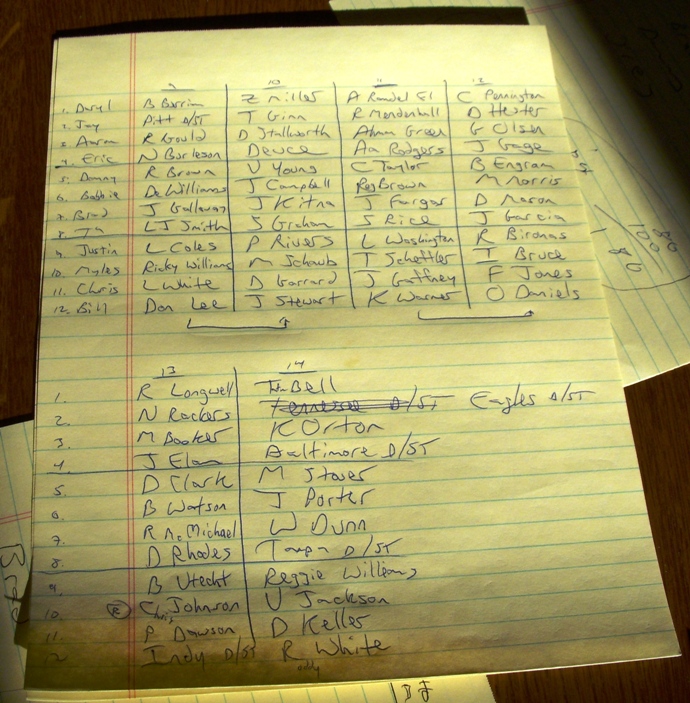 9 10 11 12
1. Daryl B Berrian Z Miller A Randel El C Pennington
2. Jay Pitt D/ST T Ginn R Mendenhall D Hester
3. Aaron R Gould D Stallworth Ahman Green G Olsen
4. Eric N Burleson Deuce Aa Rodgers J Gage
5. Danny R Brown V Young C Taylor B Engram
6. Bobbie De Williams J Campbell Reg Brown M Morris
7. Brad J Galloway J Kitna J Fargas D Mason
8. LJ Smith S Graham S Rice J Garcia
9. Justin L Coles P Rivers L Washington R Bironas
10. Myles Ricky Williams M Schaub T Scheffler I Bruce
11. Chris L White D Garrard J Gaffney F Jones
12. Bill Don Lee J Stewart K Warner O Daniels
13 14
1. R Longwell Bell
2. N Rackers Tennessee D/ST Eagles D/ST
3. M Booker K Orton
4 J Elam Baltimore D/ST
5. D Clark M Stover
6. B Watson J Porter
7. R McMichael W Dunn
8. D Rhodes Tampa D/ST
9. B Utecht Reggie Williams
10. R Chris Johnson V Jackson
11. P Dawson D Keller
12 Indy D/ST Roddy White